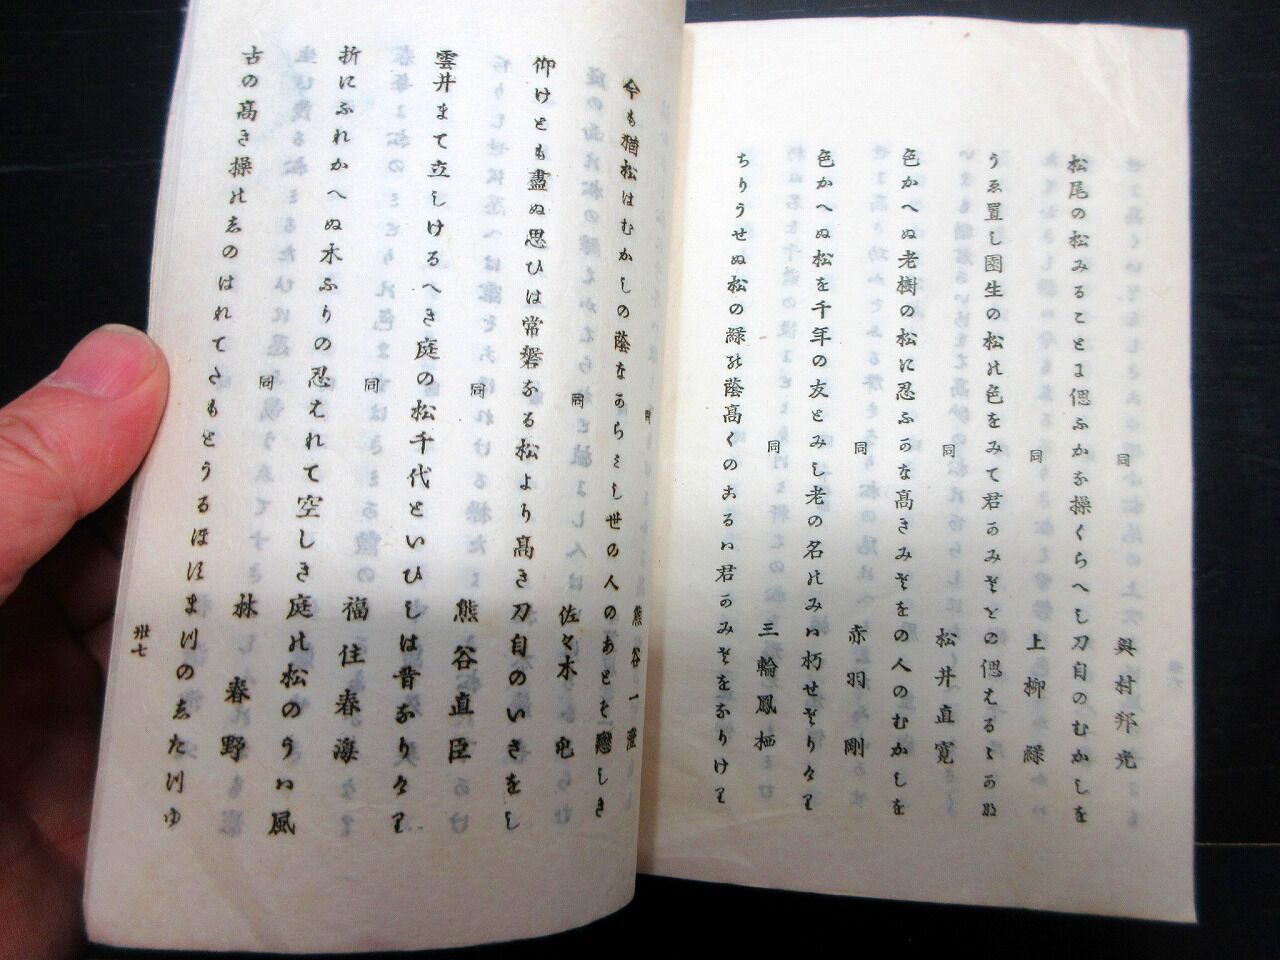 同 奥村邦光
松尾の松みることに偲ふかな操くらへし刀自のむかしを
同 上柳緑
うゑ置し園生の松の色をみて君のみさをの偲はるゝかな
同 松井直寛
色かへぬ老樹の松に忍ふかな高きみさをの人のむかしを
同 赤羽剛
色かへぬ松を千年の友とみし老の名のみは朽せさりけり
同 三輪鳳栖
ちりうせぬ松の緑の蔭高くのこるは君のみさをなりけり
同 熊谷一澄
今も猶松はむかしの蔭なからみし世の人のあとそ戀しき
同 佐々木
仰けとも盡ぬ思ひは常磐なる松より高き刀自のいさをし
同 熊谷直臣
雲井まて立しけるへき庭の松千代といひしは昔なりけり
同 福住春海
折にふれかへぬ木ふりの忍はれて空しき庭の松のうは風
同 林春野
古の高き操のしのはれてたもとうるほすまつのした川ゆ
卅七